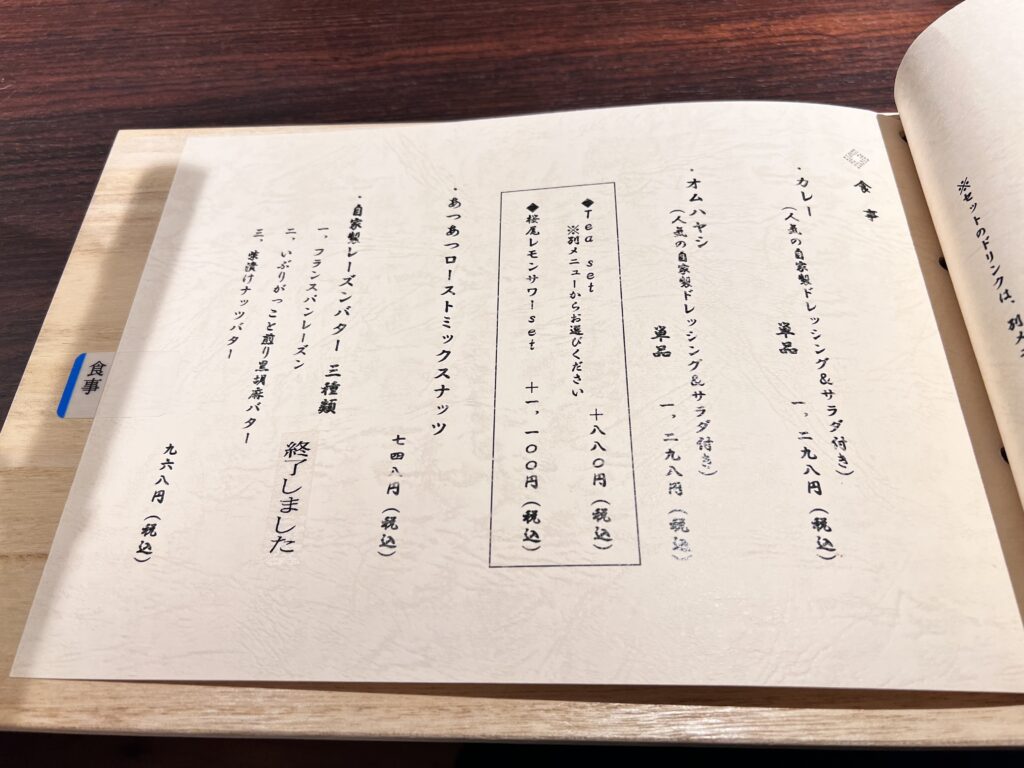 食事
・カレー
（人気の自家製ドレッシング＆サラダ付き）
単品　一、二九八円（税込）
・オムハヤシ
（人気の自家製ドレッシング＆サラダ付き）
単品　一、二九八円（税込）
◆Tea set
※別メニューからお選びください
＋八八〇円（税込）
◆桜尾レモンサワーset　＋一、一〇〇円（税込）
・あつあつローストミックスナッツ
七四八円（税込）
・自家製レーズンバター 三種類
一、フランスパンレーズン
終了しました
二、いぶりがっこと煎り黒胡麻バター
三、味噌漬けナッツバター
九六八円（税込）
食事
※セットのドリンクは、別メ